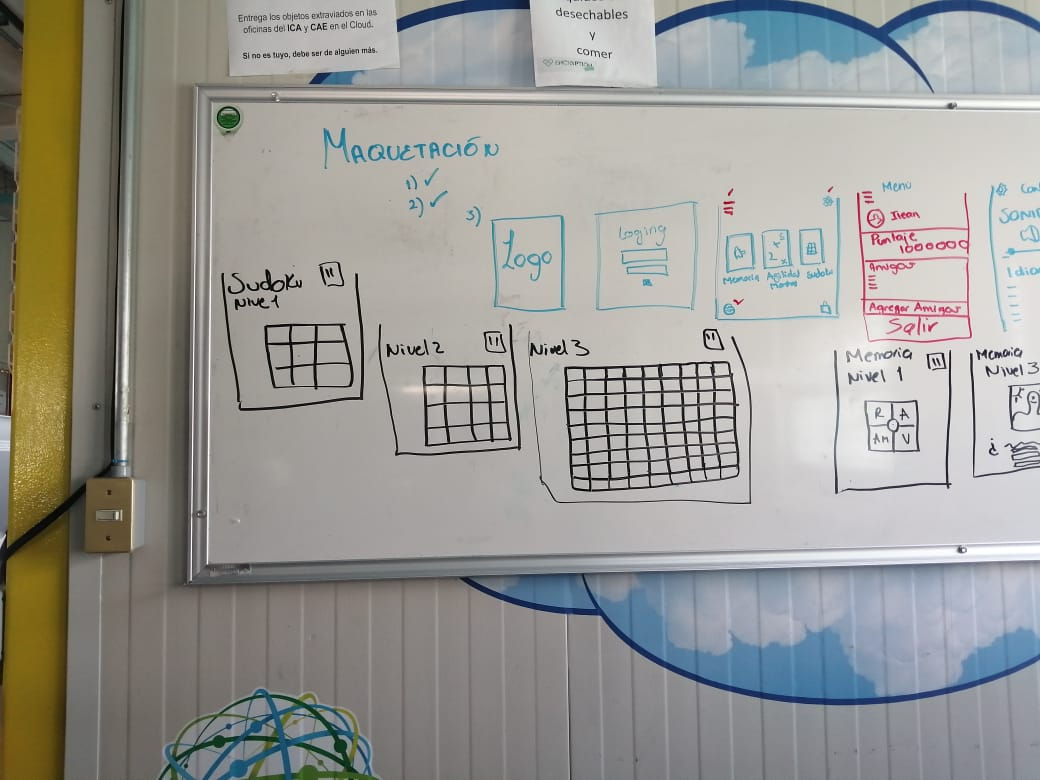 Entrega los objetos extraviados en las
oficinas del ICA y CAE en el Cloud.
Si no es tuyo, debe ser de alguien más.
desechables
y
comer
MAQUETACIÓN
1) ✓
2) ✓
3)
Logo
Loging
Memoria
Agilidad
Sudoku
Menu
Itean
Puntaje
1000000
Amigos
Agregar Amigos
Salir
Sudoku
Nivel
Nivel 2
Nivel 3
Memoria
Nivel 1
R A
Am V
Memoria
Nivel 3